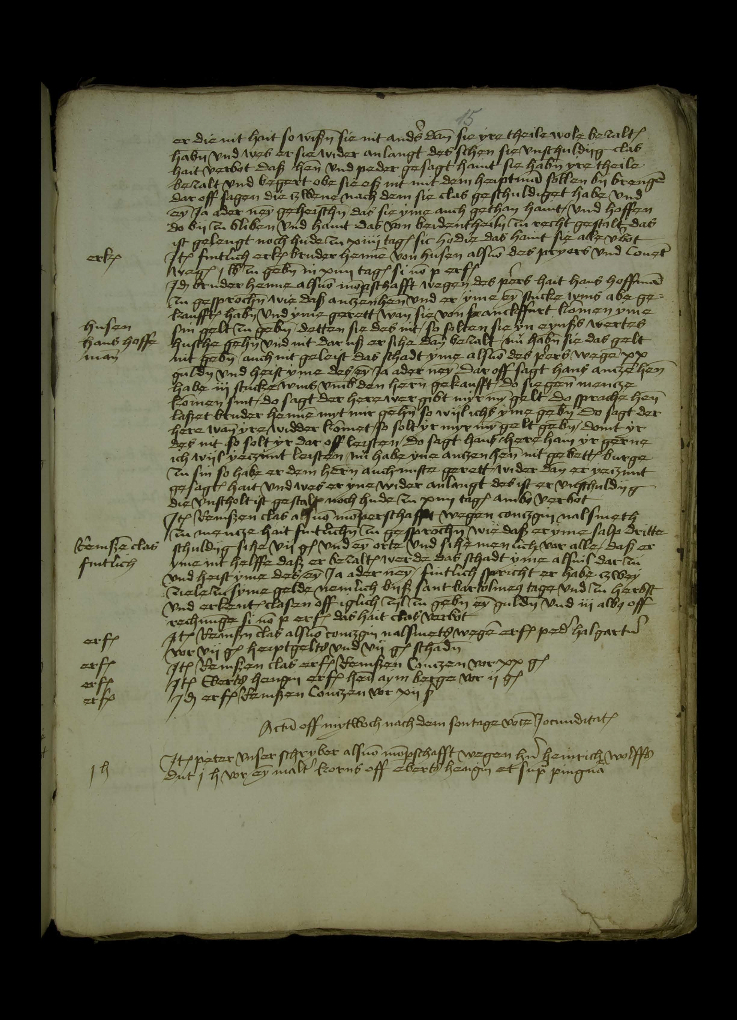 15
er die nit hait so wissen sie nit anders dan sie yre theile wole bezalt
habn und wes er sie wider anlangt des sehen sie unschuldig clas
hait verbot daß hen und peder gesagt haint sie habn yre theile
bezalt und begert obe sie eß nit mit dem heiptman sollen bij brengen
dar off sagen die zwene nach dem sie clas geschuldiget habe und
ey Ja ader ney geheischn das sie yme auch gethan haint und hoffen
do bij zu bliben und haint das von beidentheiln zu recht gestalt das
ist gelengt noch hude zu xiiij tagen sic hodie das haint sie alle verbot
erk
Item fintlich erk bruder henne von husen also des pryors und Convent
wegen j lb zu gebn in xiiij tagen si no p erf
Id bruder henne also momperschafft wegen des pers hait hans hoffman
zu gesprochn wie daß anzenhen und er yme ey stucke wins abe ge-
kaufft habn und yme gerett wan sie von franckffurt komen yme
husen
hans hoffe
man
sin gelt zu gebn detten sie des nit so solten sie yn eynß wertes
husche gehn und nit dar uß er sihe dan bezalt nu habn sie das gelt
nit gebn auch nit geleist das schadt yme also des pers wegen xx
guldn und heist yme des ey Ja ader ney Dar off sagt hans anzenhen
habe iij stucke wins umb den hern gekaufft do sie gen mencze
komen sint do sagt der here wer gibt myr my gelt do sprache hen
lasset bruder henne myt mir gehn so wil ichs yme gebn do sagt der
here wan yre widder komet so solt yr myr my gelt gebn domit yr
des nit so solt yr dar off leisten do sagt hans here han yr gerne
ich wil yeczunt leisten nu habe yne anzenhen nit gebett burge
zu sin so habe er dem hern auch nuste gerett wider dan er yeczunt
gesagt hait und wes er yne wider anlangt des ist er unschuldig
die unscholt ist gestalt noch hude zu xiiij tagen ambo verbot
Item Remßen clas also momperschafft wegen conczgin nalsmeth
zu mencze hait fintlichn zu gesprochn wie daß er yme salb dritte
Remßen clas
fintlich
schuldig sihe vij gl und ey orte und sihe menlich vor alle daß er
yme nit helffe daß er bezalt werde das schadt yme also vil dar zu
und heist yme des ey Ja ader ney fintlich spricht er habe zwey
ziele zu syme gelde nemlich biß sant bartolmes tage und zu herbst
und erkent clasen off iglich zijl zu gebn ey guldn und iij alb off
rechnunge si no p erf das hait clas verbot
erf
Item Remßen clas also conczgin nalsmeds wegen erf peder halgarten
vor vij gl heiptgelts und vij gl schadn
erf
Item Remßen clas erf Remßen Conczen vor xx gl
erf
Item Ebertz hengin erf hen aym berge vor ij gl
erf
Id erf Remßen Conczen vor xij ß
Actum off mytwoch nach dem sontage vocem Jocunditatis
j h
Item peter unser schryber also momperschafft wegen hern heinrich wolffs
dut j h vor ey malter korns off ebertz hengin et sup pingnora